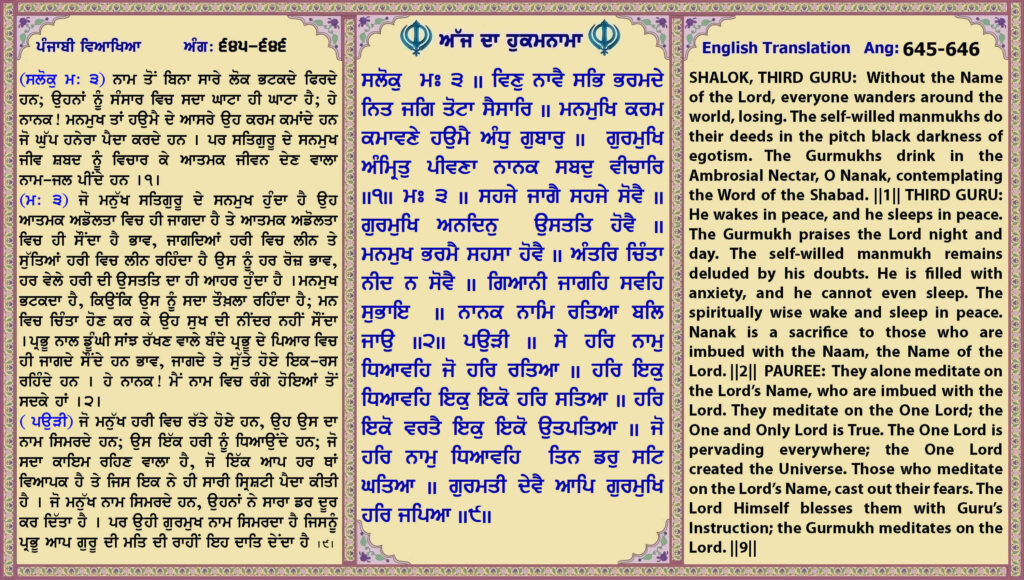 ਪੰਜਾਬੀ ਵਿਆਖਿਆ ਅੰਗ: ੬੪੫-੬੪੬
(ਸਲੋਕੁ ਮਃ ੩) ਨਾਮ ਤੋਂ ਬਿਨਾ ਸਾਰੇ ਲੋਕ ਭਟਕਦੇ ਫਿਰਦੇ
ਹਨ; ਉਹਨਾਂ ਨੂੰ ਸੰਸਾਰ ਵਿਚ ਸਦਾ ਘਾਟਾ ਹੀ ਘਾਟਾ ਹੈ; ਹੇ
ਨਾਨਕ! ਮਨਮੁਖ ਤਾਂ ਹਉਮੈ ਦੇ ਆਸਰੇ ਉਹ ਕਰਮ ਕਮਾਂਦੇ ਹਨ
ਜੋ ਘੁੱਪ ਹਨੇਰਾ ਪੈਦਾ ਕਰਦੇ ਹਨ । ਪਰ ਸਤਿਗੁਰੂ ਦੇ ਸਨਮੁਖ
ਜੀਵ ਸ਼ਬਦ ਨੂੰ ਵਿਚਾਰ ਕੇ ਆਤਮਕ ਜੀਵਨ ਦੇਣ ਵਾਲਾ
ਨਾਮ-ਜਲ ਪੀਂਦੇ ਹਨ ।੧।
(ਮਃ ੩) ਜੋ ਮਨੁੱਖ ਸਤਿਗੁਰੂ ਦੇ ਸਨਮੁਖ ਹੁੰਦਾ ਹੈ ਉਹ
ਆਤਮਕ ਅਡੋਲਤਾ ਵਿਚ ਹੀ ਜਾਗਦਾ ਹੈ ਤੇ ਆਤਮਕ ਅਡੋਲਤਾ
ਵਿਚ ਹੀ ਸੌਂਦਾ ਹੈ ਭਾਵ, ਜਾਗਦਿਆਂ ਹਰੀ ਵਿਚ ਲੀਨ ਤੇ
ਸੁੱਤਿਆਂ ਹਰੀ ਵਿਚ ਲੀਨ ਰਹਿੰਦਾ ਹੈ ਉਸ ਨੂੰ ਹਰ ਰੋਜ਼ ਭਾਵ,
ਹਰ ਵੇਲੇ ਹਰੀ ਦੀ ਉਸਤਤਿ ਦਾ ਹੀ ਆਹਰ ਹੁੰਦਾ ਹੈ ।ਮਨਮੁਖ
ਭਟਕਦਾ ਹੈ, ਕਿਉਂਕਿ ਉਸ ਨੂੰ ਸਦਾ ਤੌਖ਼ਲਾ ਰਹਿੰਦਾ ਹੈ; ਮਨ
ਵਿਚ ਚਿੰਤਾ ਹੋਣ ਕਰ ਕੇ ਉਹ ਸੁਖ ਦੀ ਨੀਂਦਰ ਨਹੀਂ ਸੌਂਦਾ
।ਪ੍ਰਭੂ ਨਾਲ ਡੂੰਘੀ ਸਾਂਝ ਰੱਖਣ ਵਾਲੇ ਬੰਦੇ ਪ੍ਰਭੂ ਦੇ ਪਿਆਰ ਵਿਚ
ਹੀ ਜਾਗਦੇ ਸੌਂਦੇ ਹਨ ਭਾਵ, ਜਾਗਦੇ ਤੇ ਸੁੱਤੇ ਹੋਏ ਇਕ-ਰਸ
ਰਹਿੰਦੇ ਹਨ । ਹੇ ਨਾਨਕ! ਮੈਂ ਨਾਮ ਵਿਚ ਰੰਗੇ ਹੋਇਆਂ ਤੋਂ
ਸਦਕੇ ਹਾਂ ।੨।
( ਪਉੜੀ) ਜੋ ਮਨੁੱਖ ਹਰੀ ਵਿਚ ਰੱਤੇ ਹੋਏ ਹਨ, ਉਹ ਉਸ ਦਾ
ਨਾਮ ਸਿਮਰਦੇ ਹਨ; ਉਸ ਇੱਕ ਹਰੀ ਨੂੰ ਧਿਆਉਂਦੇ ਹਨ; ਜੋ
ਸਦਾ ਕਾਇਮ ਰਹਿਣ ਵਾਲਾ ਹੈ, ਜੋ ਇੱਕ ਆਪ ਹਰ ਥਾਂ
ਵਿਆਪਕ ਹੈ ਤੇ ਜਿਸ ਇਕ ਨੇ ਹੀ ਸਾਰੀ ਸ੍ਰਿਸ਼ਟੀ ਪੈਦਾ ਕੀਤੀ
ਹੈ । ਜੋ ਮਨੁੱਖ ਨਾਮ ਸਿਮਰਦੇ ਹਨ, ਉਹਨਾਂ ਨੇ ਸਾਰਾ ਡਰ ਦੂਰ
ਕਰ ਦਿੱਤਾ ਹੈ । ਪਰ ਉਹੀ ਗੁਰਮੁਖ ਨਾਮ ਸਿਮਰਦਾ ਹੈ ਜਿਸਨੂੰ
ਪ੍ਰਭੂ ਆਪ ਗੁਰੂ ਦੀ ਮਤਿ ਦੀ ਰਾਹੀਂ ਇਹ ਦਾਤਿ ਦੇਂਦਾ ਹੈ ।੯।
ਅੱਜ ਦਾ ਹੁਕਮਨਾਮਾ
ਸਲੋਕੁ ਮਃ ੩ ॥ ਵਿਣੁ ਨਾਵੈ ਸਭਿ ਭਰਮਦੇ
ਨਿਤ ਜਗਿ ਤੋਟਾ ਸੈਸਾਰਿ ॥ ਮਨਮੁਖਿ ਕਰਮ
ਕਮਾਵਣੇ ਹਉਮੈ ਅੰਧੁ ਗੁਬਾਰੁ ॥ ਗੁਰਮੁਖਿ
ਅੰਮ੍ਰਿਤੁ ਪੀਵਣਾ ਨਾਨਕ ਸਬਦੁ ਵੀਚਾਰਿ
॥੧॥ ਮਃ ੩ ॥ ਸਹਜੇ ਜਾਗੈ ਸਹਜੇ ਸੋਵੈ ॥
ਗੁਰਮੁਖਿ ਅਨਦਿਨੁ ਉਸਤਤਿ ਹੋਵੈ ॥
ਮਨਮੁਖ ਭਰਮੈ ਸਹਸਾ ਹੋਵੈ ॥ ਅੰਤਰਿ ਚਿੰਤਾ
ਨੀਦ ਨ ਸੋਵੈ ॥ ਗਿਆਨੀ ਜਾਗਹਿ ਸਵਹਿ
ਸੁਭਾਇ ॥ ਨਾਨਕ ਨਾਮਿ ਰਤਿਆ ਬਲਿ
ਜਾਉ ॥੨॥ ਪਉੜੀ ॥ ਸੇ ਹਰਿ ਨਾਮੁ
ਧਿਆਵਹਿ ਜੋ ਹਰਿ ਰਤਿਆ ॥ ਹਰਿ ਇਕੁ
ਧਿਆਵਹਿ ਇਕੁ ਇਕੋ ਹਰਿ ਸਤਿਆ ॥ ਹਰਿ
ਇਕੋ ਵਰਤੈ ਇਕੁ ਇਕੋ ਉਤਪਤਿਆ ॥ ਜੋ
ਹਰਿ ਨਾਮੁ ਧਿਆਵਹਿ ਤਿਨ ਡਰੁ ਸਟਿ
ਘਤਿਆ ॥ ਗੁਰਮਤੀ ਦੇਵੈ ਆਪਿ ਗੁਰਮੁਖਿ
ਹਰਿ ਜਪਿਆ ॥੯॥
English Translation Ang: 645-646
SHALOK, THIRD GURU: Without the Name
of the Lord, everyone wanders around the
world, losing. The self-willed manmukhs do
their deeds in the pitch black darkness of
egotism. The Gurmukhs drink in the
Ambrosial Nectar, O Nanak, contemplating
the Word of the Shabad. ||1|| THIRD GURU:
He wakes in peace, and he sleeps in peace.
The Gurmukh praises the Lord night and
day. The self-willed manmukh remains
deluded by his doubts. He is filled with
anxiety, and he cannot even sleep. The
spiritually wise wake and sleep in peace.
Nanak is a sacrifice to those who are
imbued with the Naam, the Name of the
Lord. ||2|| PAUREE: They alone meditate on
the Lord's Name, who are imbued with the
Lord. They meditate on the One Lord; the
One and Only Lord is True. The One Lord is
pervading everywhere; the One Lord
created the Universe. Those who meditate
on the Lord's Name, cast out their fears. The
Lord Himself blesses them with Guru's
Instruction; the Gurmukh meditates on the
Lord. ||9||